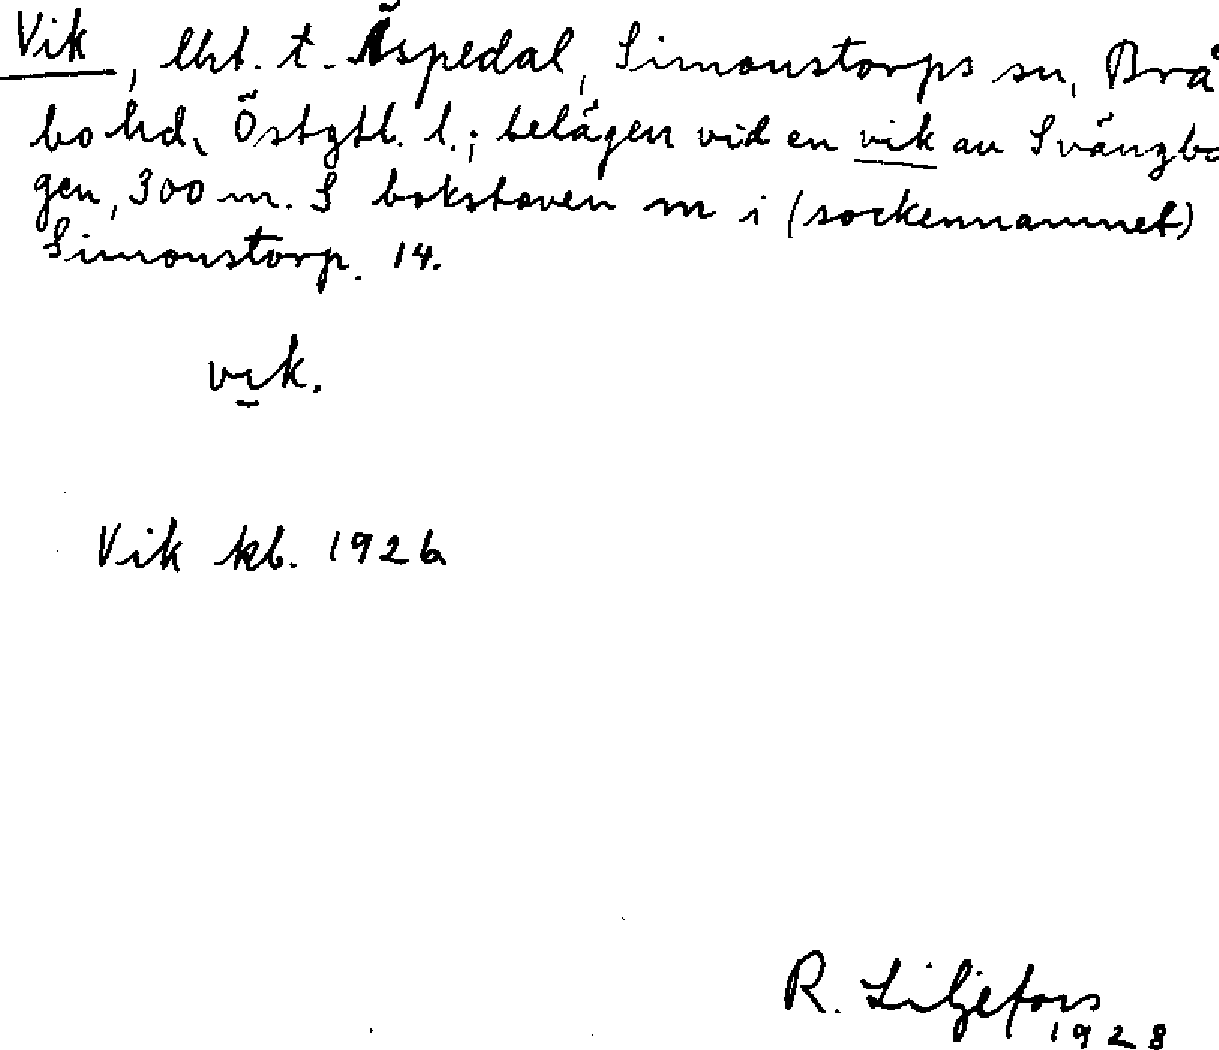 Vik, lht. t. Äspedal, Simonstorps sn, Brå
bo hd, Östgtl. l.; belägen vid en vik av Svängbå
gen, 300 m. S bokstaven m i (sockennamnet)
Simonstorp. 14.
vik.
Vik kb. 1926
R. Liljefors
1928